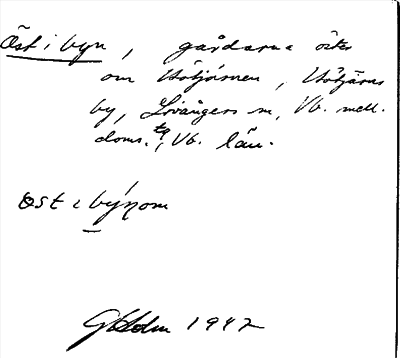 Öst i byn, gårdarna öster
om Hötjärnen, Hötjärns
by, Lövångers sn, Vb. mell.
doms. tg, Vb. län.
øst i býnom
Holm 1947